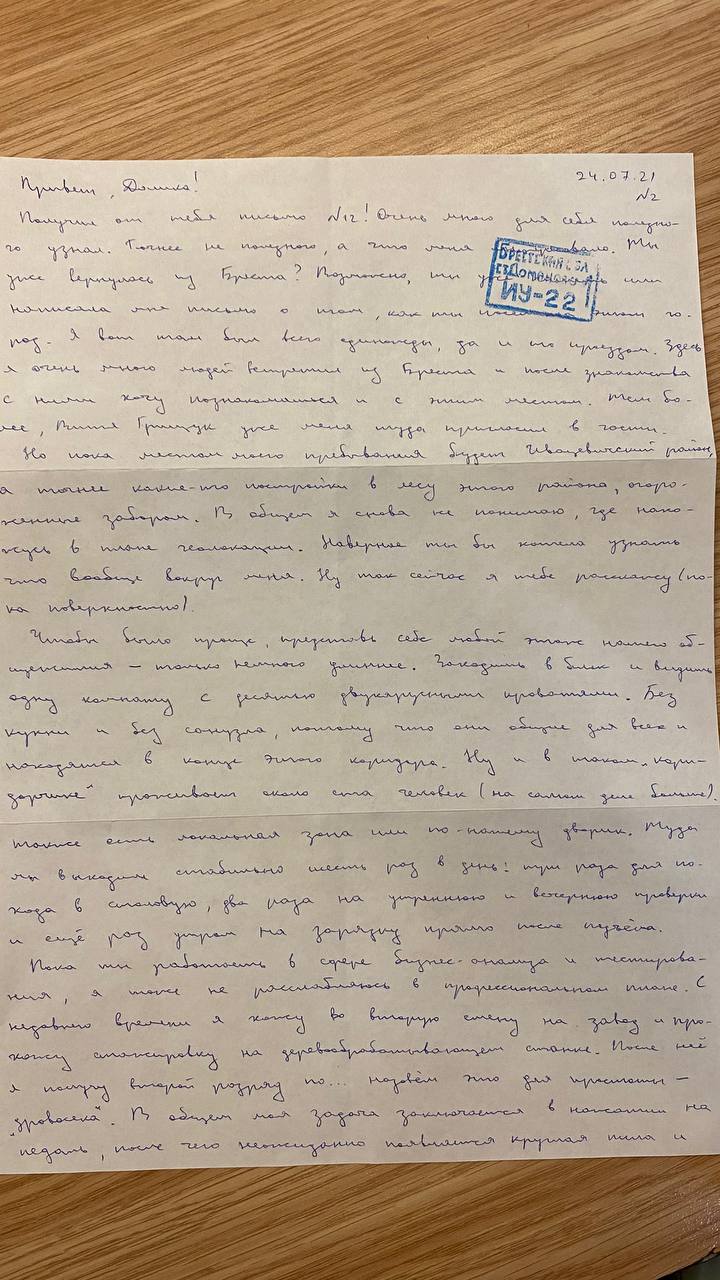 24.07.21
Привет, Димка!
№2
Получил от тебя письмо №12! Очень много для себя полезно-
го узнал. Точнее не полезного, а что меня. Ты
уже вернулась из Бреста? Возможно, ты уже или
написала мне письмо о том, как ты этот го-
род. Я вот там был всего единожды, да и то проездом. Здесь
я очень много людей встретил из Бреста и после знакомства
с ними хочу познакомиться и с этим местом. Тем бо-
лее, Витя Грищук уже меня туда пригласил в гости.
БРЕСТСКАЯ ОБЛ
ИУ-22
Но пока местом моего пребывания будет Ивацевичский район,
а точнее какие-то постройки в лесу этого района, огоро-
женные забором. В общем я снова не понимаю, где нахо-
жусь в плане геолокации. Наверное ты бы хотела узнать
что вообще вокруг меня. Ну так сейчас я тебе расскажу (по-
ка поверхностно).
Чтобы было проще, представь себе любой этаж нашего об-
щежития – только немного длиннее. Заходишь в блок и видишь
одну комнату с десятью двухъярусными кроватями. Без
кухни и без санузла, потому что они общие для всех и
находятся в конце этого коридора. Ну и в таком "кори-
дорчике" проживает около ста человек (на самом деле больше).
Также есть локальная зона или по-нашему дворик. Туда
мы выходим стабильно шесть раз в день: три раза для по-
хода в столовую, два раза на утреннюю и вечернюю проверки
и ещё раз утром на зарядку прямо после подъёма.
Пока ты работаешь в сфере бизнес-анализа и тестирова-
ния, я тоже не расслабляюсь в профессиональном плане. С
недавнего времени я хожу во вторую смену на завод и про-
хожу стажировку на деревообрабатывающем станке. После неё
я получу второй разряд по... назовём это для простоты –
"дровосека". В общем моя задача заключается в нажатии на
педаль, после чего неожиданно появляется круглая пила и